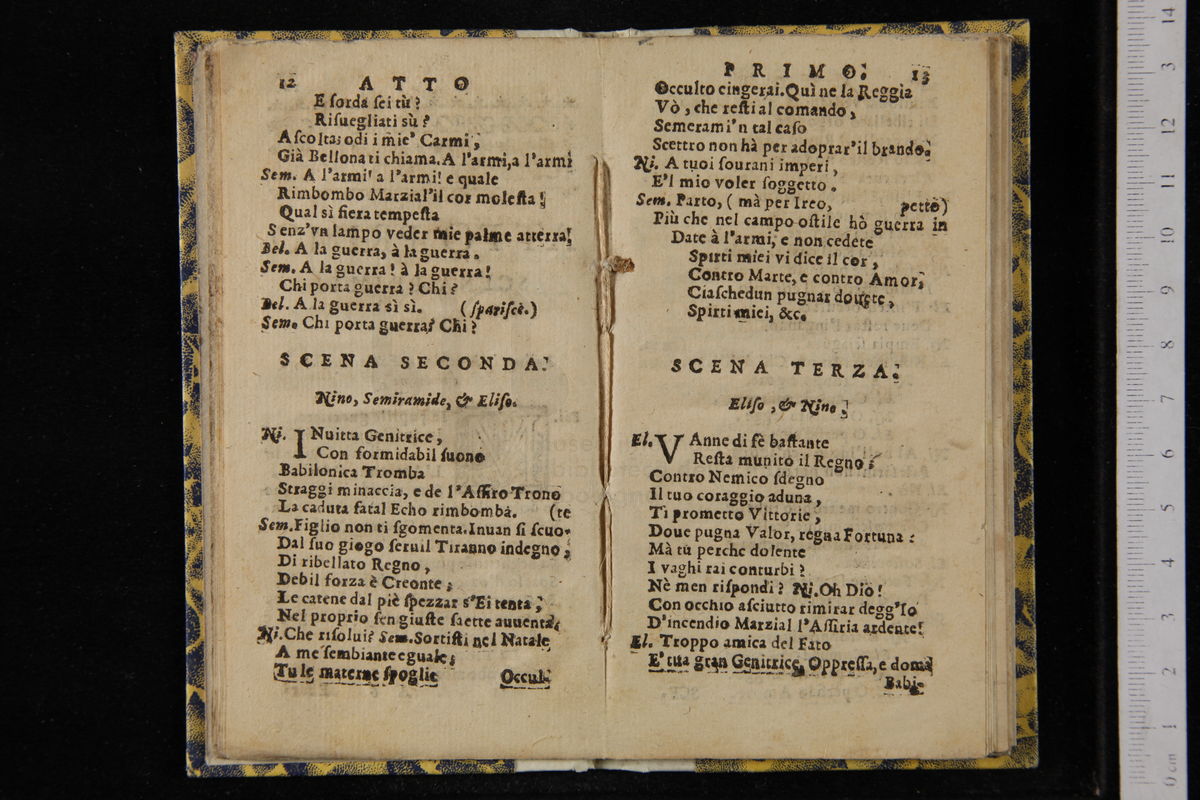 12 ATTO
E sorda sei tù?
Risuegliati sù?
Ascolta: odi i mie' Carmi;
Già Bellona ti chiama. A l'armi, a l'armi
Sem. A l'armi! a l'armi! e quale
Rimbombo Marzial'il cor molesta!
Qual sì fiera tempesta
Senz'vn lampo veder mie palme atterra!
Bel. A la guerra, à la guerra.
Sem. A la guerra! à la guerra!
Chi porta guerra? Chi?
Bel. A la guerra sì sì. (sparisce.)
Sem. Chi porta guerra? Chi?
SCENA SECONDA.
Nino, Semiramide, & Eliso.
Ni. INuitta Genitrice,
Con formidabil suono
Babilonica Tromba
Straggi minaccia, e de l'Assiro Trono
La caduta fatal Echo rimbomba. (te
Sem. Figlio non ti sgomenta. Inuan si scuo-
Dal suo giogo seruil Tiranno indegno;
Di ribellato Regno,
Debil forza è Creonte;
Le catene dal piè spezzar s'Ei tenta;
Nel proprio sen giuste saette auuenta.
Ni. Che risolui? Sem. Sortisti nel Natale
A me sembiante eguale;
Tu le materne spoglie
Occul-
PRIMO. 13
Occulto cingerai. Quì ne la Reggia
Vò, che resti al comando,
Semerami'n tal caso
Scettro non hà per adoprar'il brando.
Ni. A tuoi sourani imperi,
E'l mio voler soggetto.
Sem. Parto, (mà per Ireo, petto)
Più che nel campo ostile hò guerra in
Date à l'armi, e non cedete
Spirti miei vi dice il cor,
Contro Marte, e contro Amor;
Ciaschedun pugnar dourete,
Spirti miei, &c.
SCENA TERZA.
Eliso, & Nino.
El. VAnne di fè bastante
Resta munito il Regno;
Contro Nemico sdegno
Il tuo coraggio aduna,
Ti prometto Vittorie,
Doue pugna Valor, regna Fortuna:
Mà tù perche dolente
I vaghi rai conturbi?
Nè men rispondi? Ni. Oh Dio!
Con occhio asciutto rimirar degg'Io
D'incendio Marzial l'Assiria ardente!
El. Troppo amica del Fato
E' tua gran Genitrice, Oppressa, e doma
Babi-